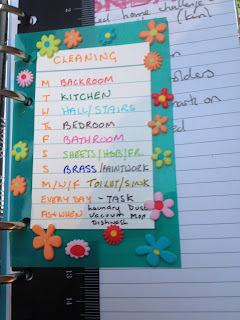 ed home challenge
(km)
CLEANING
M BACKROOM
T KITCHEN
W HALL/STAIRS
Th BEDROOM
F BATHROOM
S SHEETS/HBB/FR
S BRASS/PAINTWORK
M/W/F TOILET/SINK
EVERY DAY - TASK
AS+WHEN Laundry Dust
Vacuum Mop
Dishwash
olders
ark on
ed